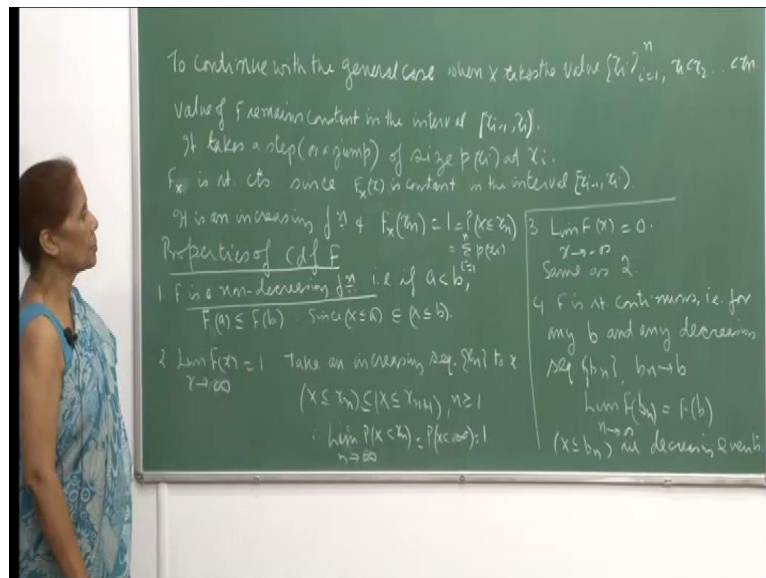 To continue with the general case when X takes the value {xi}ⁿᵢ₌₁, x1<x2 ... <xn.
Value of F remains constant in the interval [xi-1, xi).
It takes a step (or a jump) of size p(xi) at xi.
Fx is rt. cts since Fx(x) is constant in the interval [xi-1, xi).
It is an increasing fn & Fx(xn) = 1 = P(X≤xn)
= Σⁿᵢ₌₁ p(xi)
Properties of Cdf F
1 F is a non-decreasing fn. i.e if a<b,
F(a) ≤ F(b). Since (X≤a) ∈ (X≤b).
2 Lim F(x) = 1 Take an increasing seq. {xn} to x
x→∞
(X≤xn) ⊆ (X≤xn+1), n≥1
∴ Lim P(X<xn) = P(X<∞) = 1
n→∞
3 Lim F(x) = 0.
x→-∞
Same as 2.
4 F is rt continuous, i.e. for
any b and any decreasing
seq {bn}, bn→b
Lim F(bn) = F(b)
n→∞
(X≤bn) are decreasing events.